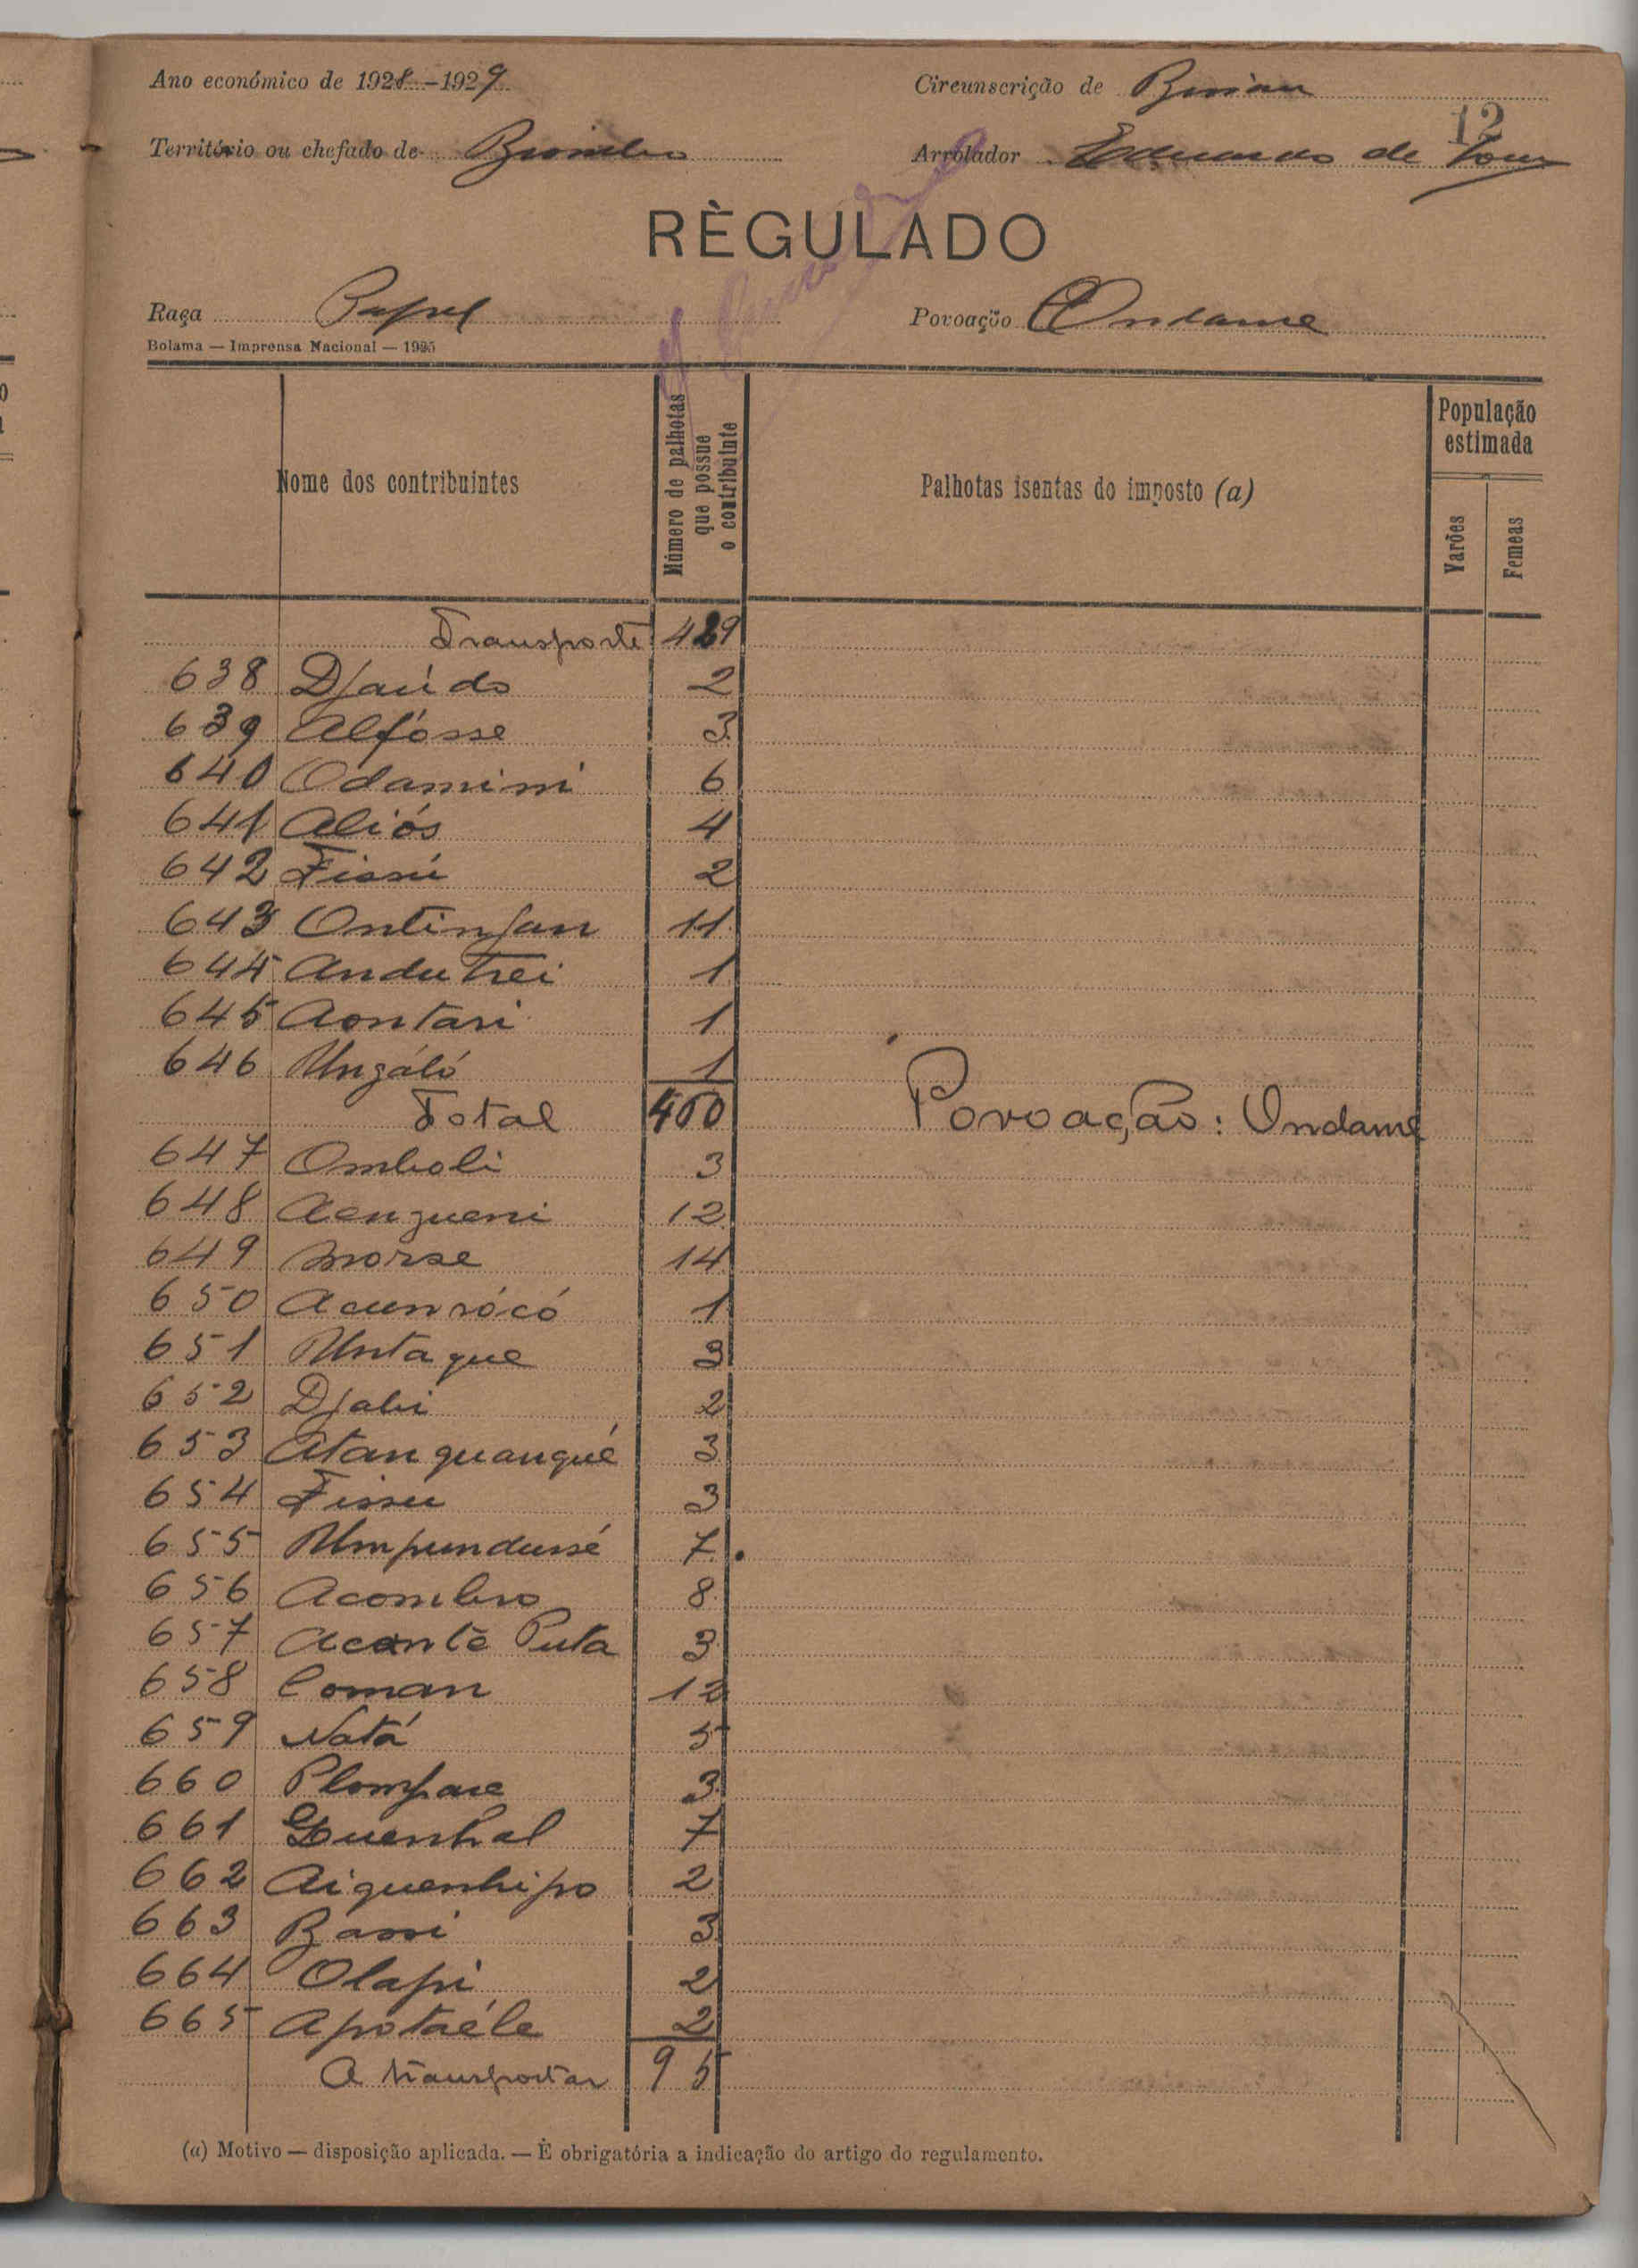 Ano económico de 1928-1929
Circunscrição de Bissau
12
Território ou chefado de Biombo
Arrolador Eduardo de
RÈGULADO
Raça Papel
Povoação Ondame
Bolama — Imprensa Nacional — 1925
Nome dos contribuintes
Número de palhotas que possue o contribuinte
Palhotas isentas do imposto (a)
População estimada
Varões
Femeas
Transporte 429
638 Djaúdo 2
639 Alfósse 3
640 Odamini 6
641 Aliós 4
642 Fissú 2
643 Ontinjan 11
644 Andutrei 1
645 Aontari 1
646 Ungáló 1
Total 460 Povoação: Ondame
647 Omboli 3
648 Aengueni 12
649 Morse 14
650 Acunrócó 1
651 Untaque 3
652 Djabi 2
653 Atanquanqué 3
654 Fissu 3
655 Umpundussé 7
656 Acombro 8
657 Acontê Puta 3
658 Coman 12
659 Natá 5
660 Plompare 3
661 Quenhal 7
662 Aiquenhipo 2
663 Bassi 3
664 Olapi 2
665 Apotaéle 2
A transportar 95
(a) Motivo — disposição aplicada. — È obrigatória a indicação do artigo do regulamento.